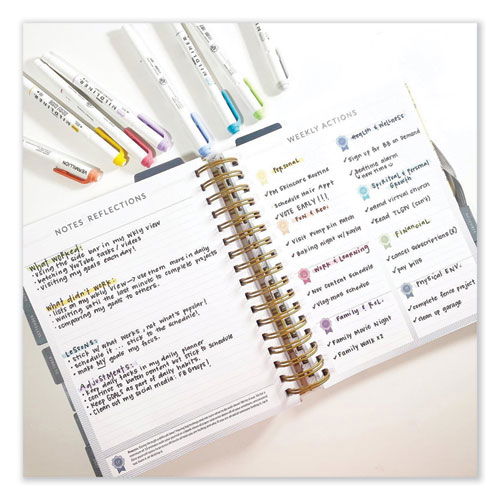 NOTES REFLECTIONS
What worked:
• using the side bar in my wkly view
• batching YouTube tasks / videos
• visiting my goals each day!
What didn't work:
• lists in my wkly view → use them more in daily
• waiting until the last minute to complete projects
• comparing my goals to others.
Lessons:
• stick w/ what works, not what's popular!
• schedule it = stick to the schedule!
• make MY goals my focus.
Adjustments:
• keep daily tasks in my daily planner
• continue to batch content but stick to schedule
• Keep GOALS as part of daily habits.
• Clean out my social media: FB Groups!
WEEKLY ACTIONS
Personal
✓ PM Skincare Routine
✓ Schedule Hair Appt
✓ VOTE EARLY!!!
Fun & Rec.
✓ Visit Pumpkin Patch
✓ Baking night w/ Kaely
Work & Learning
✓ Nov content schedule
✓ Vlogmas schedule
Family & Rel.
✓ Family Movie Night
✓ Family Walk x2
Health & Wellness
✓ Sign up for BB on Demand
✓ Bedtime alarm
✓ new time
Spiritual & Personal
Growth
✓ attend virtual church
✓ Read TLGN (cont)
Financial
✓ cancel subscriptions(3)
✓ pay bills
Physical ENV.
✓ complete fence project
✓ clean up garage
MILDLINER
MILDLINER
VERMILLION